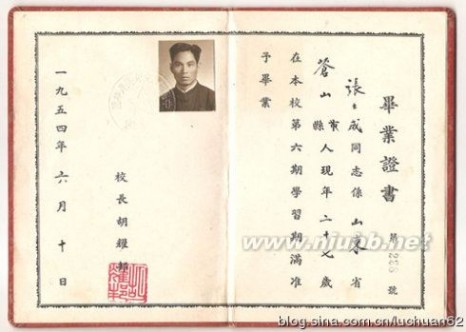 畢業證書
第 號
張 成同志係山東省
蒼山縣市人現年二十七歲
在本校第六期學習期滿准
予畢業
校長胡耀邦
一九五四年六月十日
blog.sina.com.cn/luchuan62